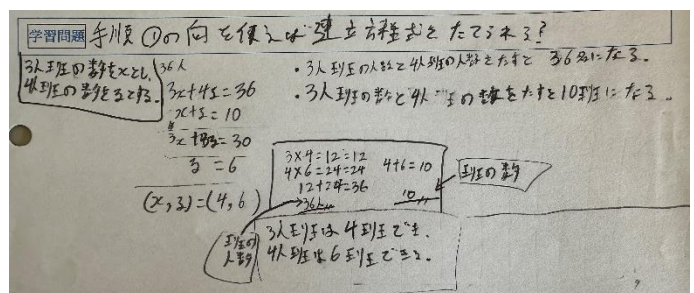 学習問題 手順①の向を使えば連立方程式をたてられる?
3人班の数をxとし、
4人班の数をzとする。
36人
3x+4z=36
x+z=10
3x+3z=30
z=6
(x,z)=(4,6)
・3人班の人数と4人班の人数をたすと36名になる。
・3人班の数と4人班の数をたすと10班になる。
3×4=12=12
4×6=24=24
12+24=36
36人
4+6=10
10
班の数
班の人数
3人班は4班でき、
4人班は6班できる。